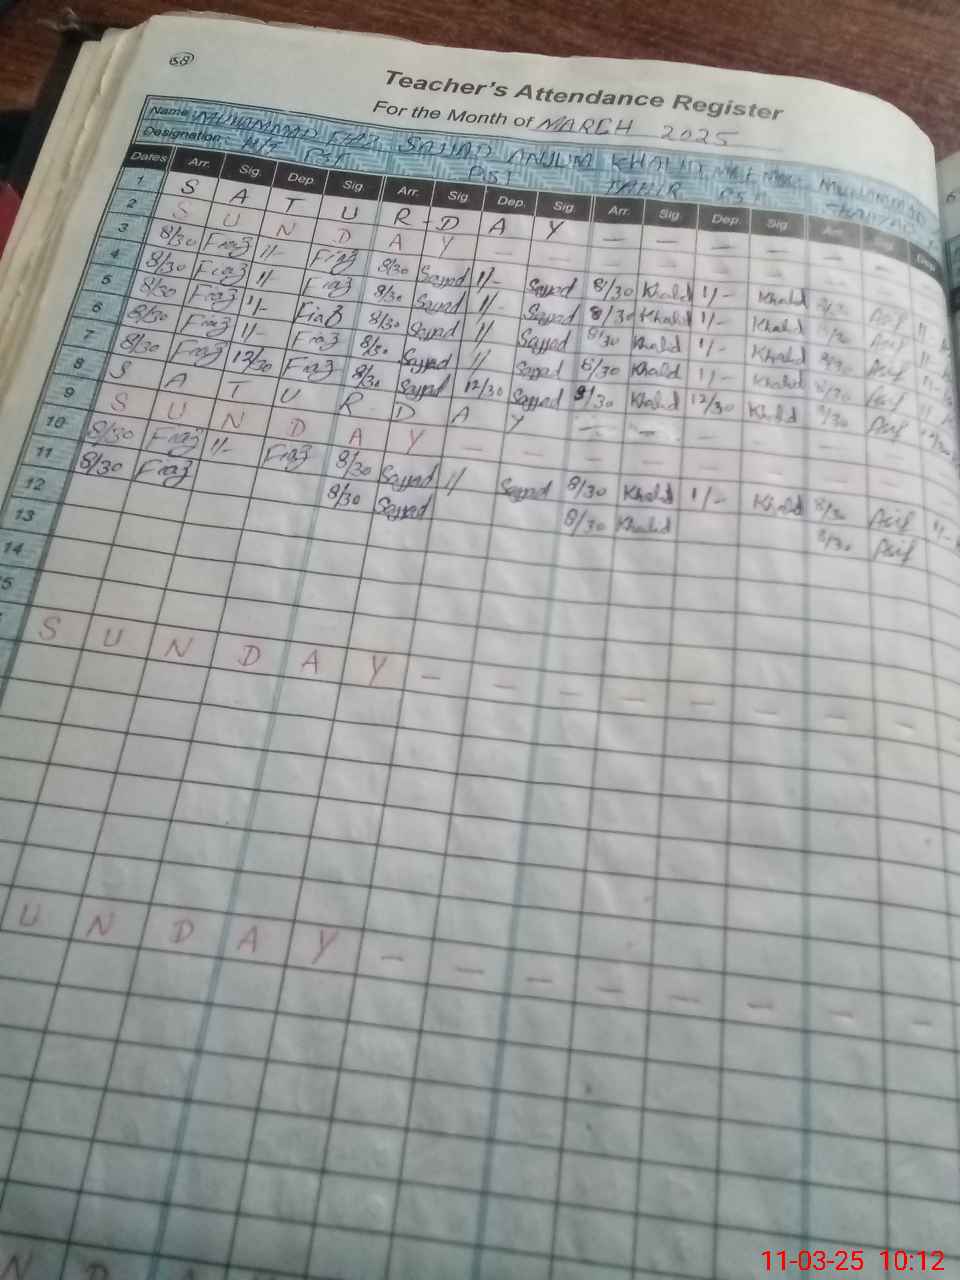 58
Teacher's Attendance Register
For the Month of MARCH 2025
Name MUHAMMAD FIAZ SAJJAD ANJUM KHALID MUHAMMAD
Designation PST PST TAHIR PST
Dates Arr. Sig. Dep. Sig. Arr. Sig. Dep. Sig. Arr. Sig. Dep. Sig. Arr. Sig. Dep.
1 S A T U R - D A Y — — — — — —
2 S U N D A Y — — — — — — — —
3 8/30 Fiaz 11/- Fiaz 8/30 Sajjad 11/- Sajjad 8/30 Khalid 1/- Khalid 8/30 Asif 11/-
4 8/30 Fiaz 11/- Fiaz 8/30 Sajjad 11/- Sajjad 8/30 Khalid 1/- Khalid Asif 11/-
5 8/30 Fiaz 11/- Fiaz 8/30 Sajjad 11/ Sajjad 8/30 Khalid 1/- Khalid 8/30 Asif
6 8/30 Fiaz 11/- Fiaz 8/30 Sajjad 11/ Sajjad 8/30 Khalid 1/- Khalid 8/30 Asif
7 8/30 Fiaz 12/30 Fiaz 8/30 Sajjad 12/30 Sajjad 8/30 Khalid 12/30 Khalid 8/30 Asif
8 S A T U R D A Y — — — —
9 S U N D A Y — — — — — —
10 8/30 Fiaz 11/- Fiaz 8/30 Sajjad 11/ Sajjad 8/30 Khalid 1/- Khalid 8/30 Asif 11/-
11 8/30 Fiaz 8/30 Sajjad 8/30 Khalid 8/30 Asif
12
13
14
5
S U N D A Y — — — — — — — —
U N D A Y — — — — — — — —
N D
11-03-25 10:12